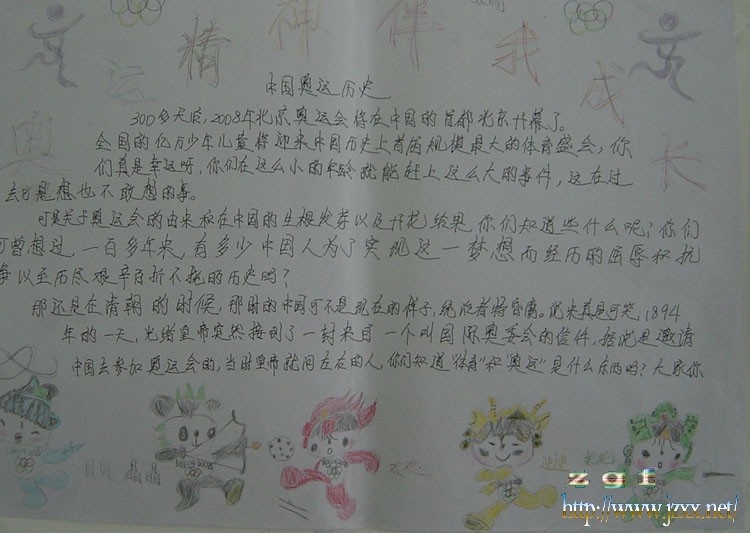 奥运精神伴我成长
中国奥运历史
300多天后,2008年北京奥运会将在中国的首都北京开幕了。
全国的亿万少年儿童将迎来中国历史上首届规模最大的体育盛会,你
们真是幸运呀,你们在这么小的年龄就能赶上这么大的事件,这在过
去可是想也不敢想的事。
可是关于奥运会的由来和在中国的生根发芽以及开花结果,你们知道些什么呢?你们
可曾想过,一百多年来,有多少中国人为了实现这一梦想而经历的屈辱和抗
争以至历尽艰辛百折不挠的历史吗?
那还是在清朝的时候,那时的中国可不是现在的样子,统治者特昏庸。说来真是可笑,1894
年的一天,光绪皇帝突然接到了一封来自一个叫国际奥委会的信件,据说是邀请
中国去参加奥运会的,当时皇帝就问左右的人,你们知道"体育"和"奥运"是什么东西吗?大家你
贝贝 晶晶 欢欢 迎迎 妮妮
zgf
http://www.jzxx.net/